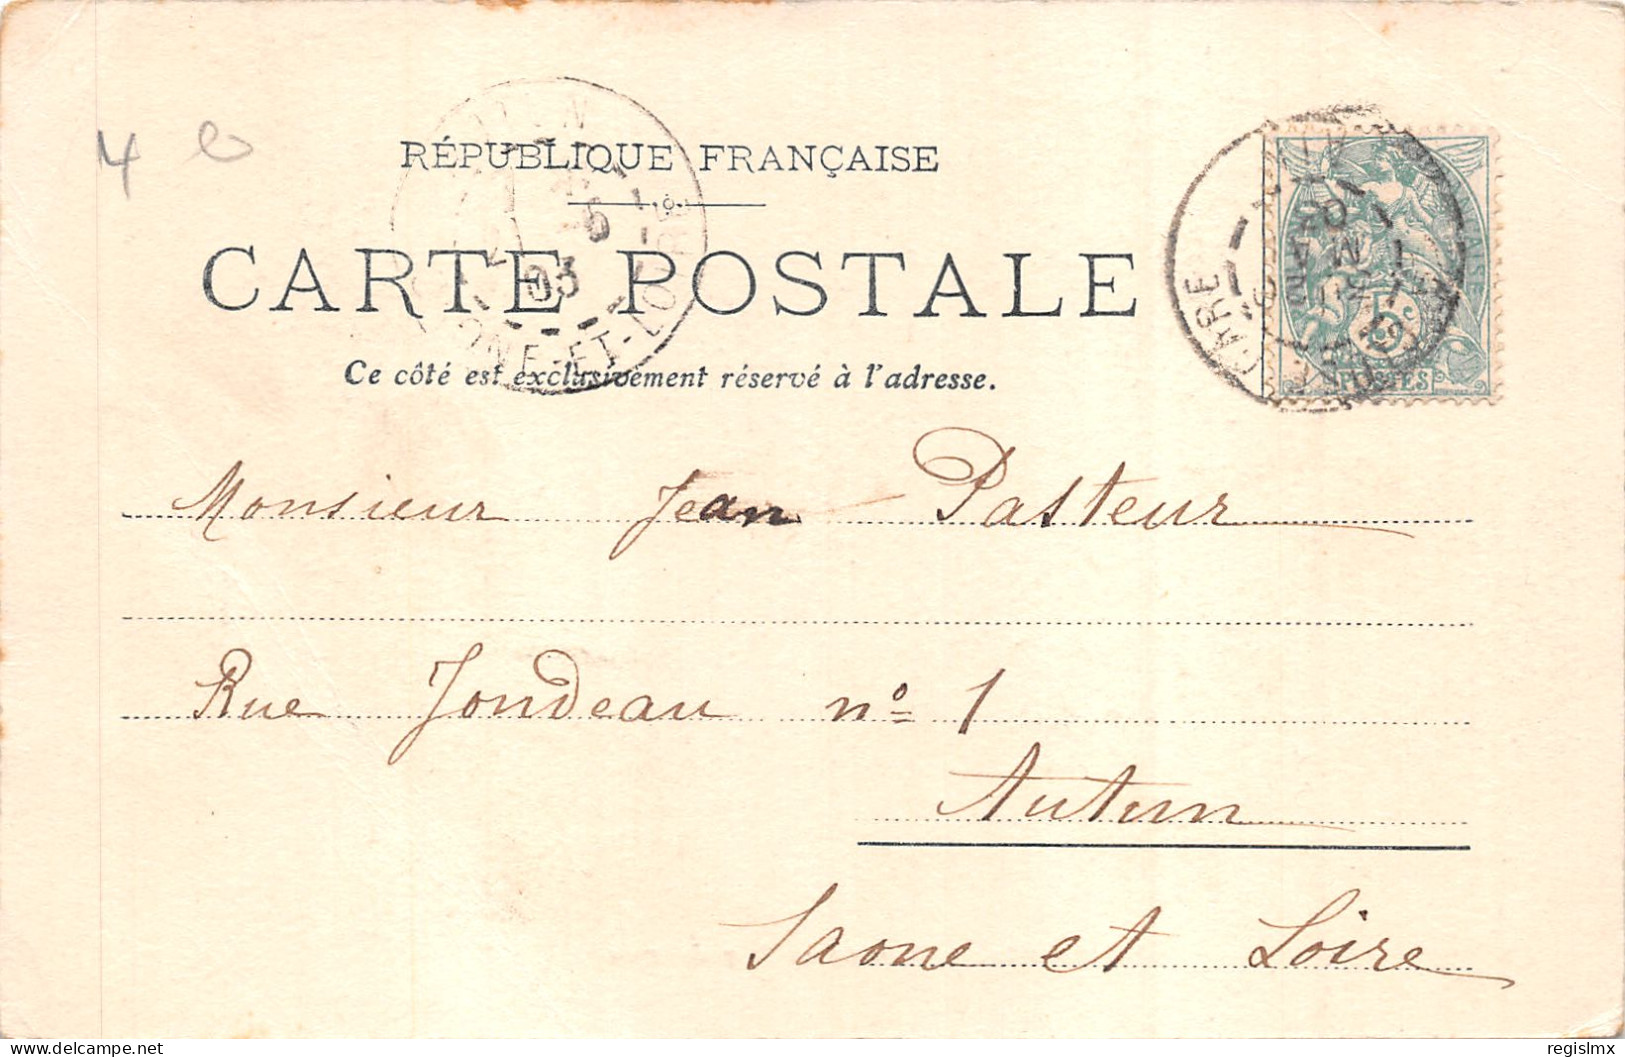 4
RÉPUBLIQUE FRANÇAISE
CARTE POSTALE
Ce côté est exclusivement réservé à l'adresse.
03
ET-LOIRE
5c
POSTES
Monsieur Jean Pasteur
Rue Jondeau nº 1
Autun
Saone et Loire
delcampe.net
regislmx